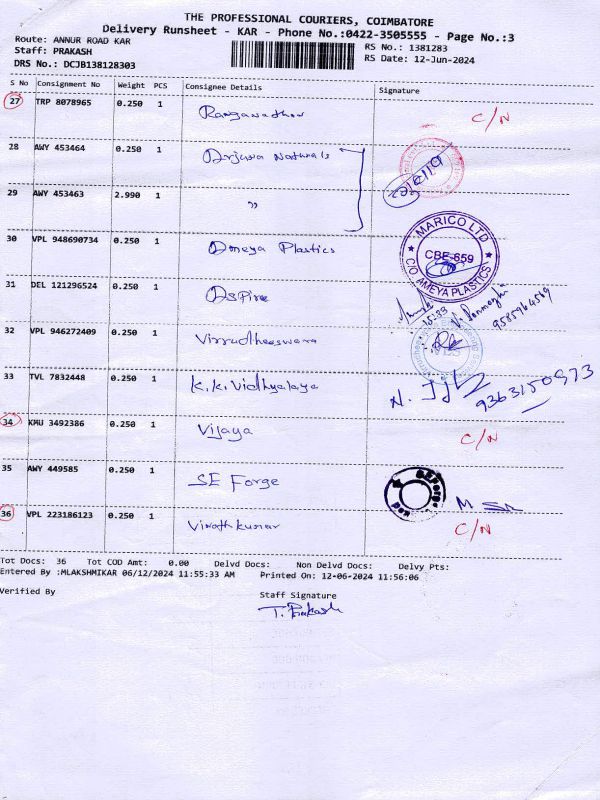 THE PROFESSIONAL COURIERS, COIMBATORE
Delivery Runsheet - KAR - Phone No.:0422-3505555 - Page No.:3
Route: ANNUR ROAD KAR
RS No.: 1381283
Staff: PRAKASH
RS Date: 12-Jun-2024
DRS No.: DCJB138128303
S No Consignment No Weight PCS Consignee Details Signature
27 TRP 8078965 0.250 1 Ranganathan C/N
28 AWY 453464 0.250 1 Arjuna Naturals
29 AWY 453463 2.990 1 "
30 VPL 948690734 0.250 1 Ameya Plastics
MARICO LTD
CBE-659
C/O. AMEYA PLASTICS
31 DEL 121296524 0.250 1 Aspire
15:33
9585964569
32 VPL 946272409 0.250 1 Virudheeswara
33 TVL 7832448 0.250 1 K.K. Vidhyalaya
9363150973
34 KMU 3492386 0.250 1 Vijaya C/N
35 AWY 449585 0.250 1 SE Forge
36 VPL 223186123 0.250 1 Vinothkumar C/N
Tot Docs: 36 Tot COD Amt: 0.00 Delvd Docs: Non Delvd Docs: Delvy Pts:
Entered By :MLAKSHMIKAR 06/12/2024 11:55:33 AM Printed On: 12-06-2024 11:56:06
Verified By Staff Signature
T. Prakash